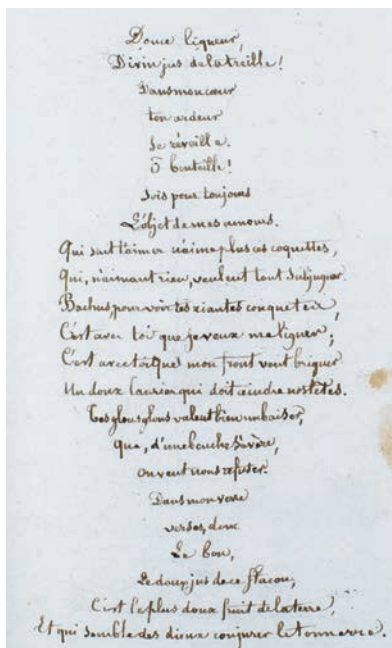 Douce liqueur,
Divin jus de la treille!
Dans mon cœur
ton ardeur
se réveille.
ô bouteille!
sois pour toujours
L'objet de mes amours.
Qui sait t'aimer n'aime plus ces coquettes,
Qui, n'aimant rien, veulent tout subjuguer.
Bachus pour voir tes riantes conquetes,
C'est avec toi que je veux me liguer;
C'est avec toi que mon front veut briguer
Un doux laurier qui doit ceindre nos têtes.
Tes glous glous valent bien un baiser,
Que, d'une bouche sévère,
on veut nous refuser.
Dans mon verre
verses, donc
Le bon,
Le doux jus de ce flacon,
C'est le plus doux fruit de la terre,
Et qui semble des dieux conjurer le tonnerre.